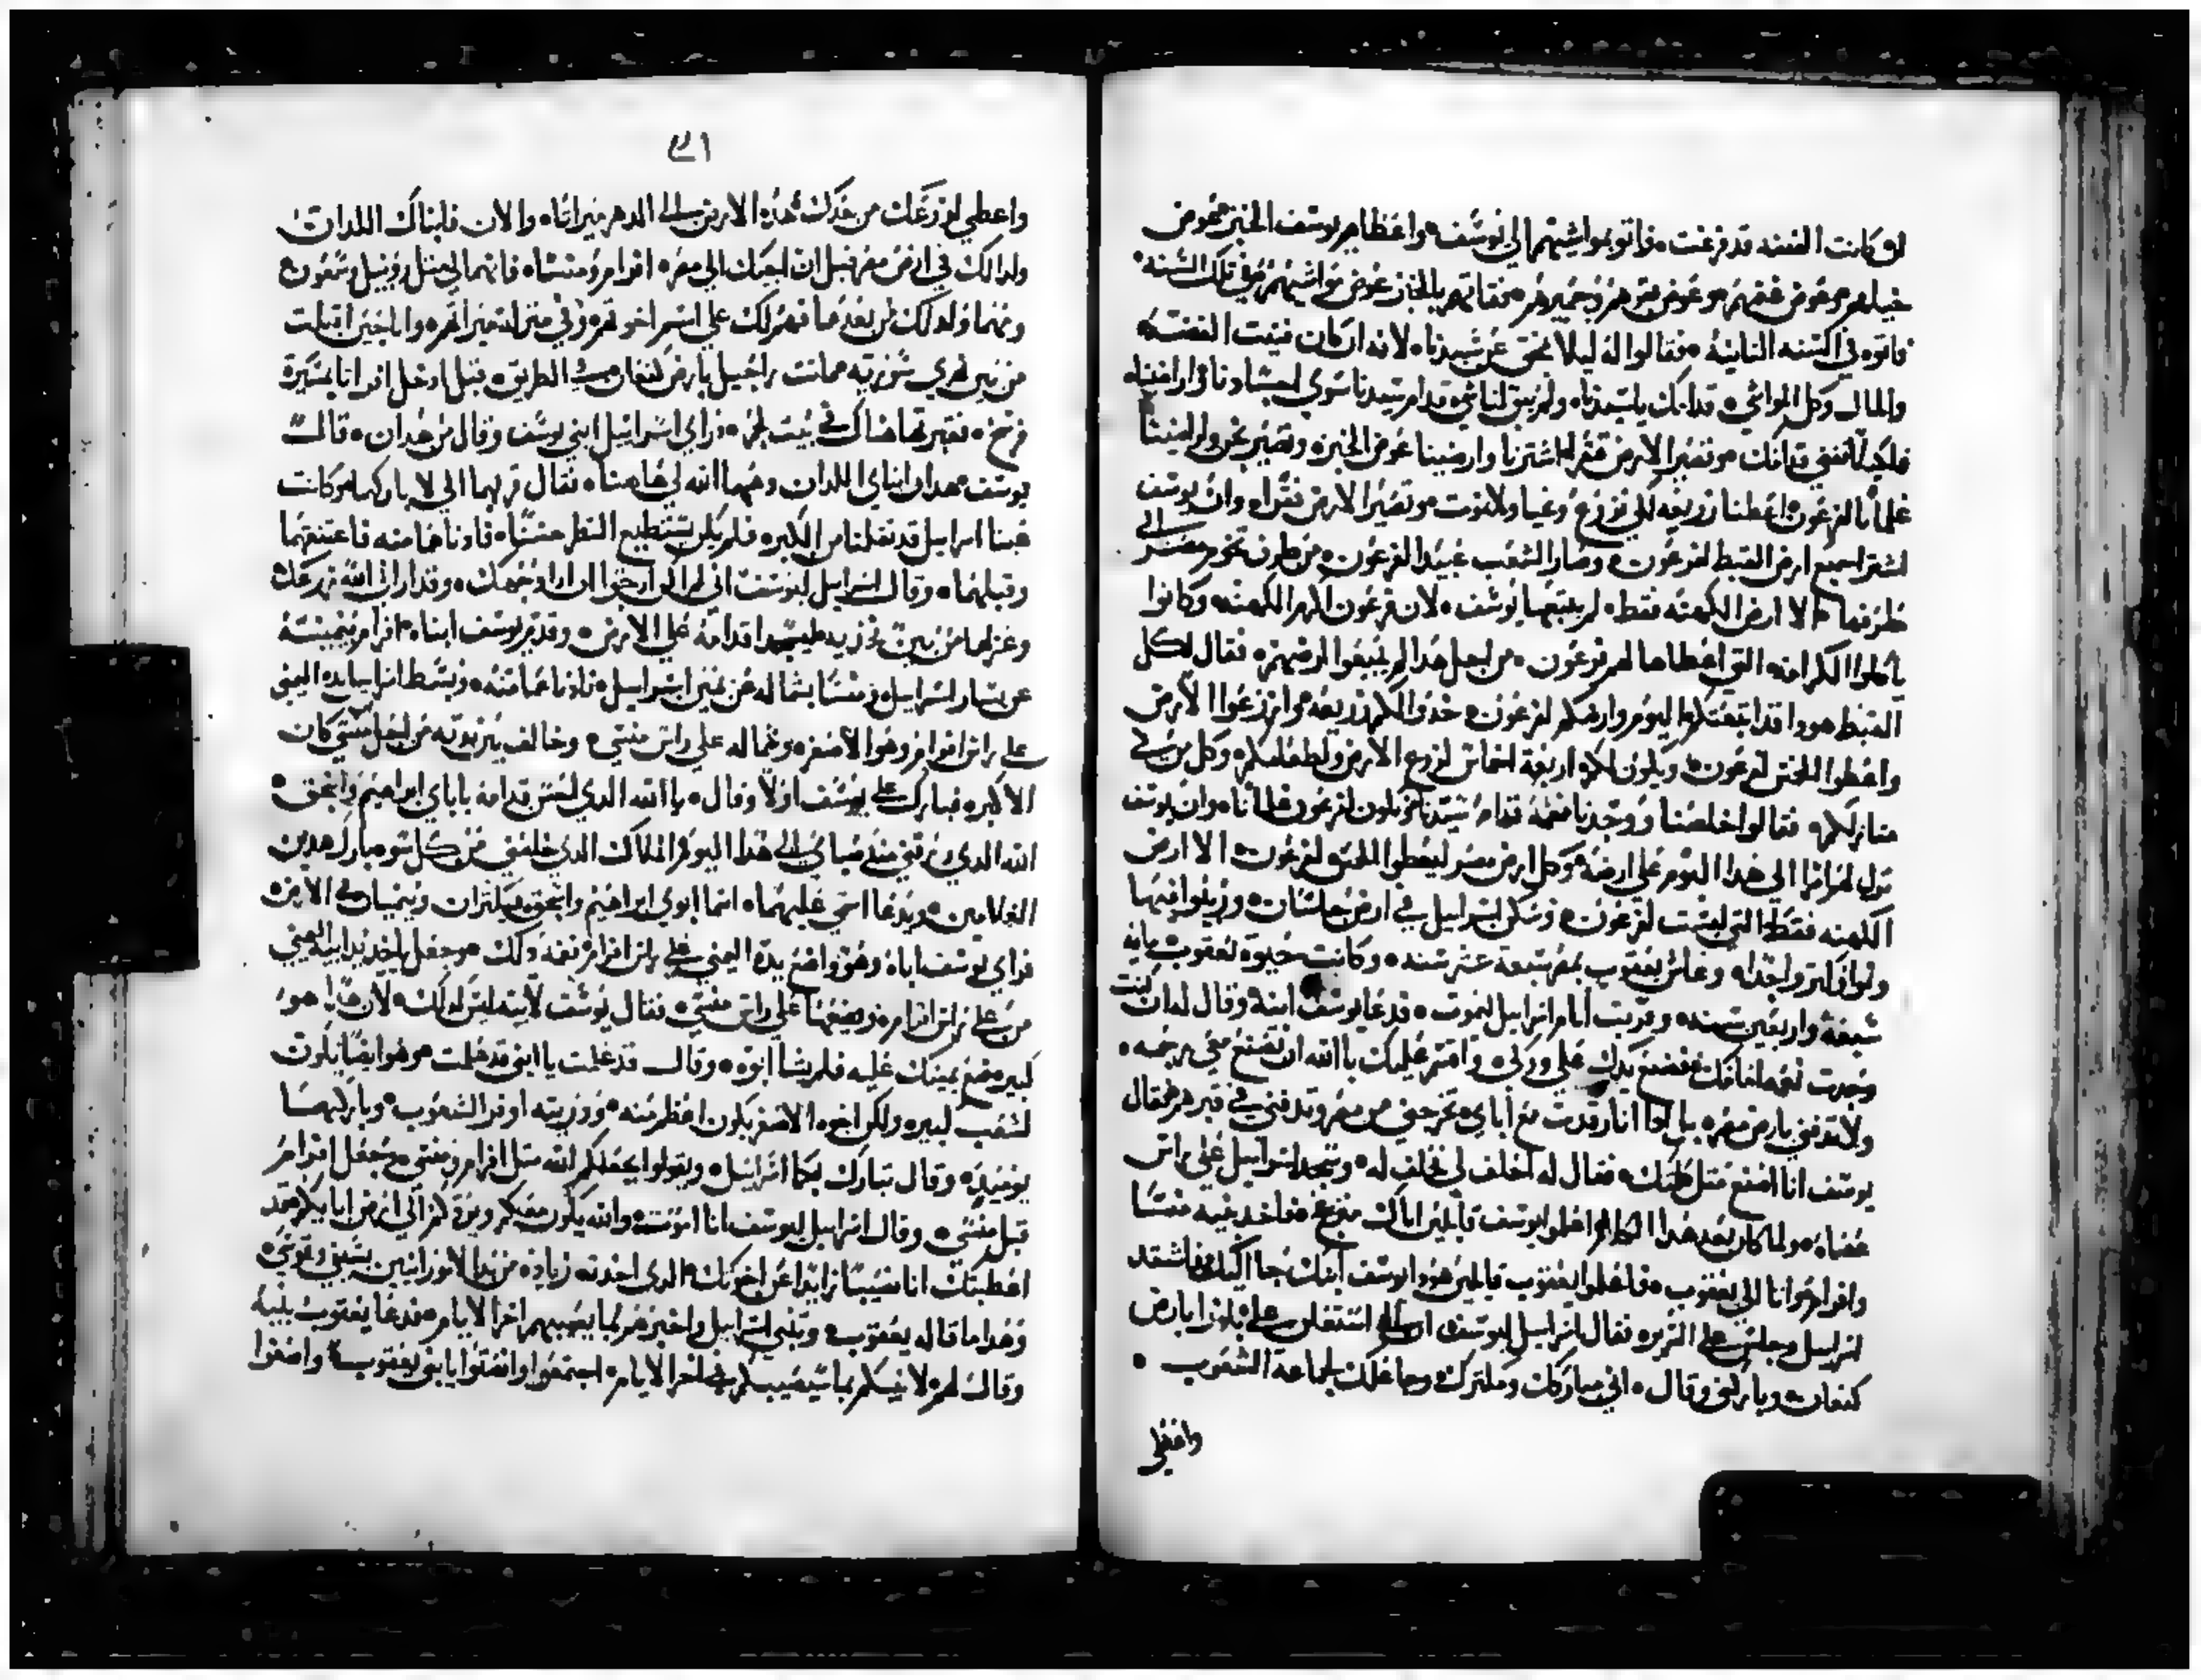 ان كانت الفضه قد فرغت فاتو بمواشيهم الي يوسف واعطاهم يوسف الخبز عوض
خيلهم وعوض غنمهم وعوض بقرهم وحميرهم وقاتهم بالخبز عوض مواشيهم في تلك السنه
فاتوه في السنه الثانيه فقالوا له ليلا نحتي عن سيدنا لانه ان كان فنيت الفضه
والمال وكل المواشي قدامك يا سيدنا ولم يبق لنا شي قدام سيدنا سوي اجسادنا واراضينا
فلكيلا نفني قدامك وتصير الارض قفرا اشترنا وارضينا عوض الخبز ونصير نحن وارضينا
غلمانا لفرعون اعطنا زريعه لكي نزرع ونحيا ولا نموت وتصير الارض قفرا وان يوسف
اشترا جميع ارض القبط لفرعون وصار الشعب عبيدا لفرعون من طرف تخوم مصر الي
طرفها الا ارض الكهنه فقط لم يبتعها يوسف لان فرعون اكرم الكهنه وكانوا
ياكلوا الكرامه التي اعطاها لهم فرعون من اجل هدا لم يبيعوا ارضهم فقال لكل
القبط هودا قد ابتعتكم اليوم وارضكم لفرعون خدوا لكم زريعه وازرعوا الارض
واعطوا الخمس لفرعون ويكون لكم اربعة اخماس لزرع الارض ولطعامكم وكل من في
منازلكم فقالوا خلصتنا ووجدنا نعمة قدام سيدنا نكون لفرعون غلمانا وان يوسف
الي هدا اليوم علي ارض وكل ارض مصر ليعطوا الخمس لفرعون الا ارض
الكهنه فقط التي ليست لفرعون وسكن اسراييل في ارض جاسان وربوا فيها
وكتروا جدا وعاش يعقوب بمصر سبعة عشر سنه وكانت حيوة يعقوب مايه
سبعة واربعين سنه وقربت ايام اسراييل لموت فدعا يوسف ابنه وقال له ان كنت
وجدت نعمه امامك فضع يدك علي وركي واقسم عليك باالله ان تصنع معي رحمه
ولا تدفني بارض مصر بل ادا انا رقدت مع اباي تخرجني من مصر وتدفني في قبرهم فقال
يوسف انا اصنع متل كلمتك فقال له احلف لي فحلف له وسجد اسراييل علي راس
عصاه ولما كان بعد هدا الكلام اعلموا يوسف قايلين اباك متوجع فاخد بنيه منسا
وافرام واتا الي يعقوب فاعلموا يعقوب قايلين هودا يوسف ابنك جا اليك فاشتد
اسراييل وجلس علي السرير فقال اسراييل ليوسف ان الله استعلن علي بلوزا بارض
كنعان وباركني وقال اني مباركك ومكترك وجاعلك لجماعة الشعوب
واعطي
واعطي لزرعك من بعدك هده الارض الي الدهر ميراثا والان فابناك اللدان
ولدا لك في ارض مصر قبل ان اجيك الي مصر افرام ومنسا فانهما لي متل روبيل وشمعون
من بين نهري سوريه ماتت راحيل بارض كنعان في الطريق قبل ادخل افراتا بمسيرة
فرسخ فقبرتها هناك في بيت لحم فراي اسراييل ابني يوسف وقال من هدان قال
يوسف هدان ابناي اللدان وهبهما الله لي هاهنا فقال قربهما الي لاباركهما وكانت
عينا اسراييل قد ثقلتا من الكبر فلم يكن يستطيع النظر حسنا فادناهما منه فاعتنقهما
وقبلهما وقال اسراييل ليوسف اني لم اكن ارجوا ان ارا وجهك وقد اراني الله زرعك
وعزلهما من بين فخديه فسجدا قدامه علي الارض وقدم يوسف ابناه افرام بيمينه
عن يسار اسراييل ومنسا بشماله عن يمين اسراييل فادناهما منه وبسط اسراييل يده اليمني
علي راس افرام وهو الاصغر وشماله علي راس منسي وخالف بين يديه من اجل منسي كان
الاكبر فبارك علي يوسف اولا وقال يا الله الدي احسن قدامه اباي ابراهيم واسحق
الله الدي رزقني مند صباي الي هدا اليوم الملاك الدي خلصني من كل سو يبارك هدين
الغلامين ويدعا اسمي عليهما اسما ابوي ابراهيم واسحق ويكتران وينميان في الارض
فراي يوسف اباه وهو واضع يده اليمني علي راس افرام فغمه دلك وجعل ياخد يد ابيه اليمني
من علي راس افرام ويضعها علي راس منسي فقال يوسف لابيه ليس كدلك لان هدا هو
كبير فضع يمينك عليه فلم يشا ابوه وقال قد علمت يا ابني قد علمت وهو ايضا يكون
لشعب كبير ولكن اخوه الاصغر يكون اعظم منه ودريته اوفر الشعوب وباركهما
يوميد وقال تبارك بكما اسراييل ويقولوا يجعلكم الله متل افرام ومنسي وجعل افرام
قبل منسي وقال اسراييل ليوسف انا اموت والله يكون معكم ويردكم الي ارض ابايكم وقد
اعطيتك انا نصيبا زايدا عن اخوتك الدي اخدته زياده من يد الامورانيين بسيفي وقوسي
وهدا ما قاله يعقوب وبني اسراييل واخبرهم بما يصيبهم اخر الايام ودعا يعقوب بنيه
وقال لهم لانبيكم بما سيصيبكم في اخر الايام اجتمعوا وانصتوا يا بني يعقوب واصغوا